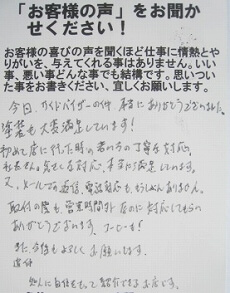 「お客様の声」をお聞か
せください！
お客様の喜びの声を聞くほど仕事に情熱とや
りがいを、与えてくれる事はありません。いい
事、悪い事どんな事でも結構です。思いつい
た事をお書きください、宜しくお願いします。
今日、サイドバイザーの件 本当にありがとうございました。
塗装も大変満足しています！
初めて店に行った時の君の丁寧な対応
社長さん 対応、本当に満足しています。
又、メールでの返信、電話対応も、もうしぶんありません。
取付の際も、営業時間外なのに対応してもらい
ありがとうございます。
また、今後もよろしくお願いします。
追伸
知人に自信をもって紹介できるお店です。